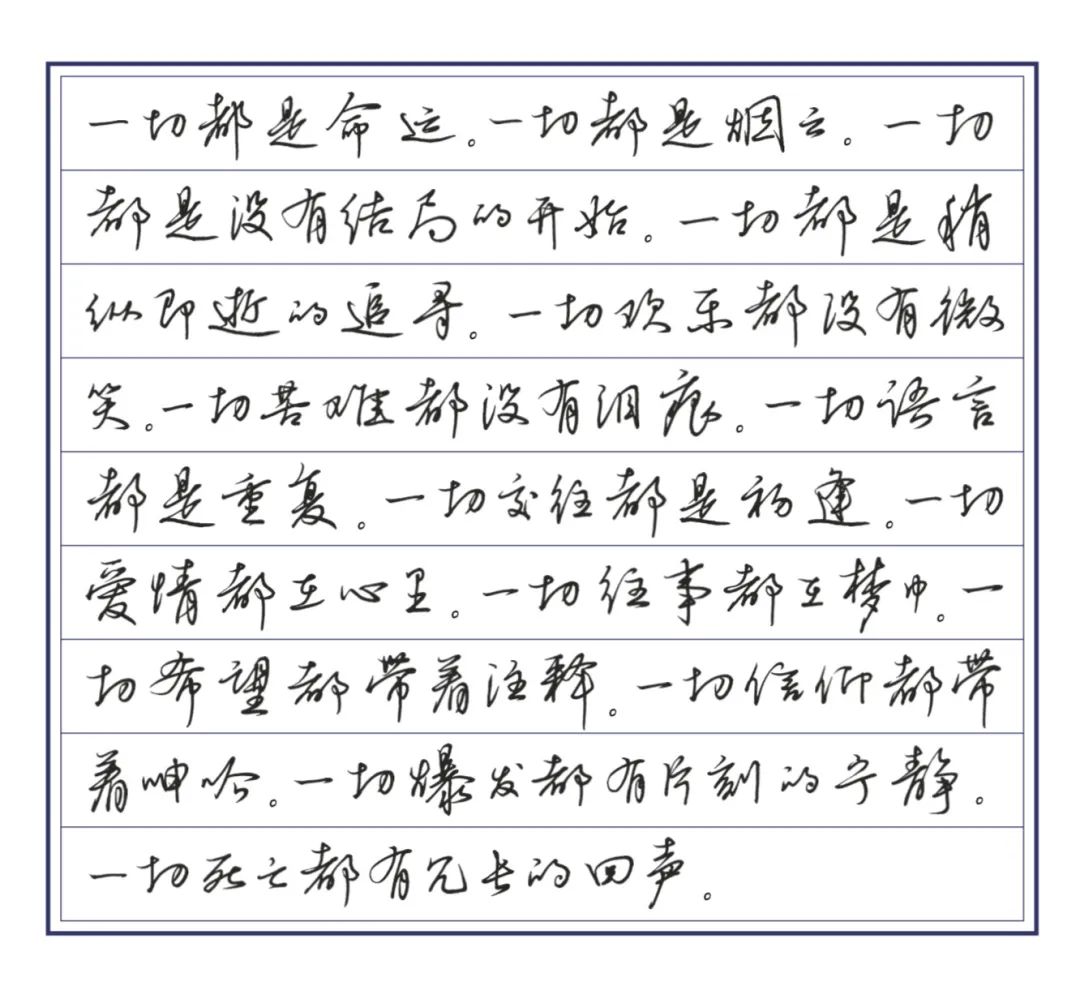 一切都是命运。一切都是烟云。一切
都是没有结局的开始。一切都是稍
纵即逝的追寻。一切欢乐都没有微
笑。一切苦难都没有泪痕。一切语言
都是重复。一切交往都是初逢。一切
爱情都在心里。一切往事都在梦中。一
切希望都带着注释。一切信仰都带
着呻吟。一切爆发都有片刻的宁静。
一切死亡都有冗长的回声。